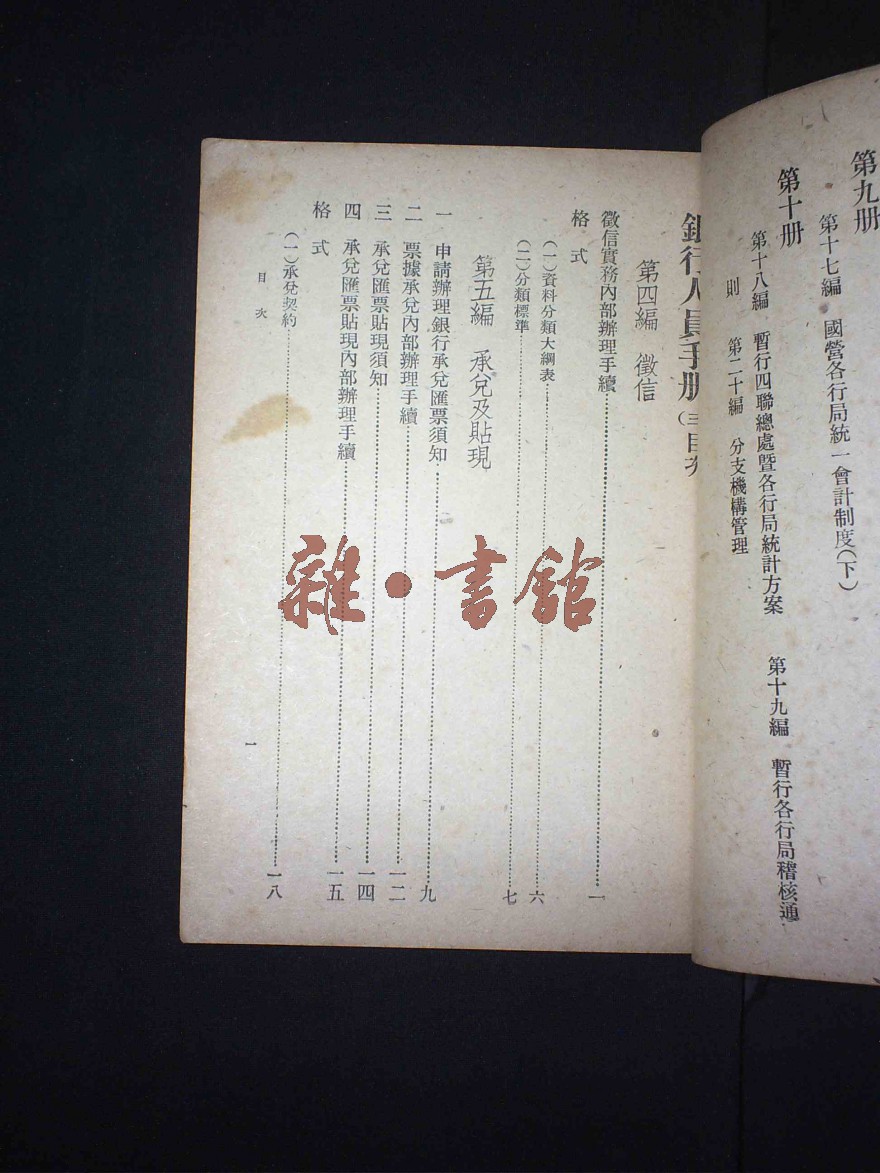 第九册
第十七編　國營各行局統一會計制度(下)
第十册
第十八編　暫行四聯總處暨各行局統計方案　第十九編　暫行各行局稽核通
則　第二十編　分支機構管理
銀行人員手册(三)目次
第四編　徵信
徵信實務內部辦理手續……一
格式
(一)資料分類大綱表……六
(二)分類標準……七
第五編　承兌及貼現
一　申請辦理銀行承兌匯票須知……九
二　票據承兌內部辦理手續……一二
三　承兌匯票貼現須知……一四
四　承兌匯票貼現內部辦理手續……一五
格式
(一)承兌契約……一八
目次
一
雜·書館